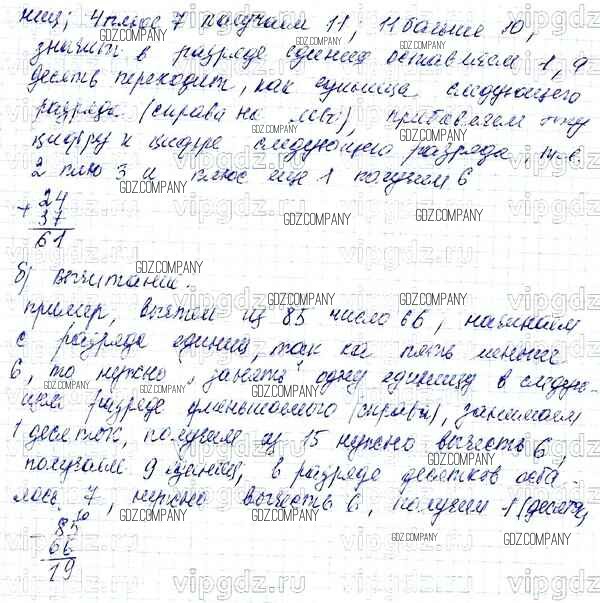 ниц; 4 плюс 7 получаем 11, 11 больше 10,
значит в разряде единиц оставляем 1, а
десять переходит, как единица следующего
разряда (справа на лево), прибавляем эту
цифру к цифре следующего разряда, т.е.
2 плюс 3 и плюс еще 1 получим 6
+ 24
37
61
б) вычитание.
Пример, вычтем из 85 число 66, начинаем
с разряда единиц, так как пять меньше
6, то нужно "занять" одну единицу в следую-
щем разряде уменьшаемого (справа), занимаем
1 десяток, получаем из 15 нужно вычесть 6,
получаем 9 единиц, в разряде десятков оста
лось 7, нужно вычесть 6, получим 1 (десяток)
10
- 85
66
19
GDZ.COMPANY
vipgdz.ru